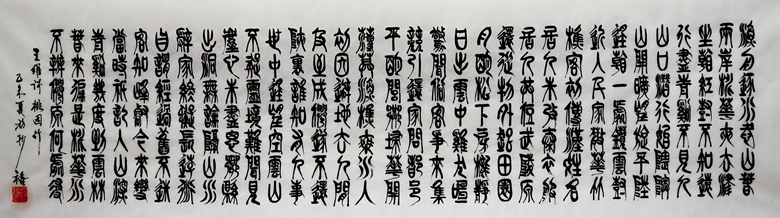 漁舟逐水愛山春
兩岸桃花夾去津
坐看紅樹不知遠
行盡青溪不見人
山口潛行始隈隩
山開曠望旋平陸
遙看一處攢雲樹
近入人家散花竹
樵客初傳漢姓名
居人未改秦衣服
居人共住武陵源
還從物外起田園
月明松下房櫳靜
日出雲中雞犬喧
驚聞俗客爭來集
競引還家問都邑
平明閭巷掃花開
薄暮漁樵乘水入
初因避地去人間
及至成仙遂不還
峽裏誰知有人事
世中遙望空雲山
不疑靈境難聞見
塵心未盡思鄉縣
出洞無論隔山水
辭家終擬長游衍
自謂經過舊不迷
安知峰壑今來變
當時只記入山深
青溪幾度到雲林
春來徧是桃花水
不辨仙源何處尋
王維詩桃園行
乙未夏